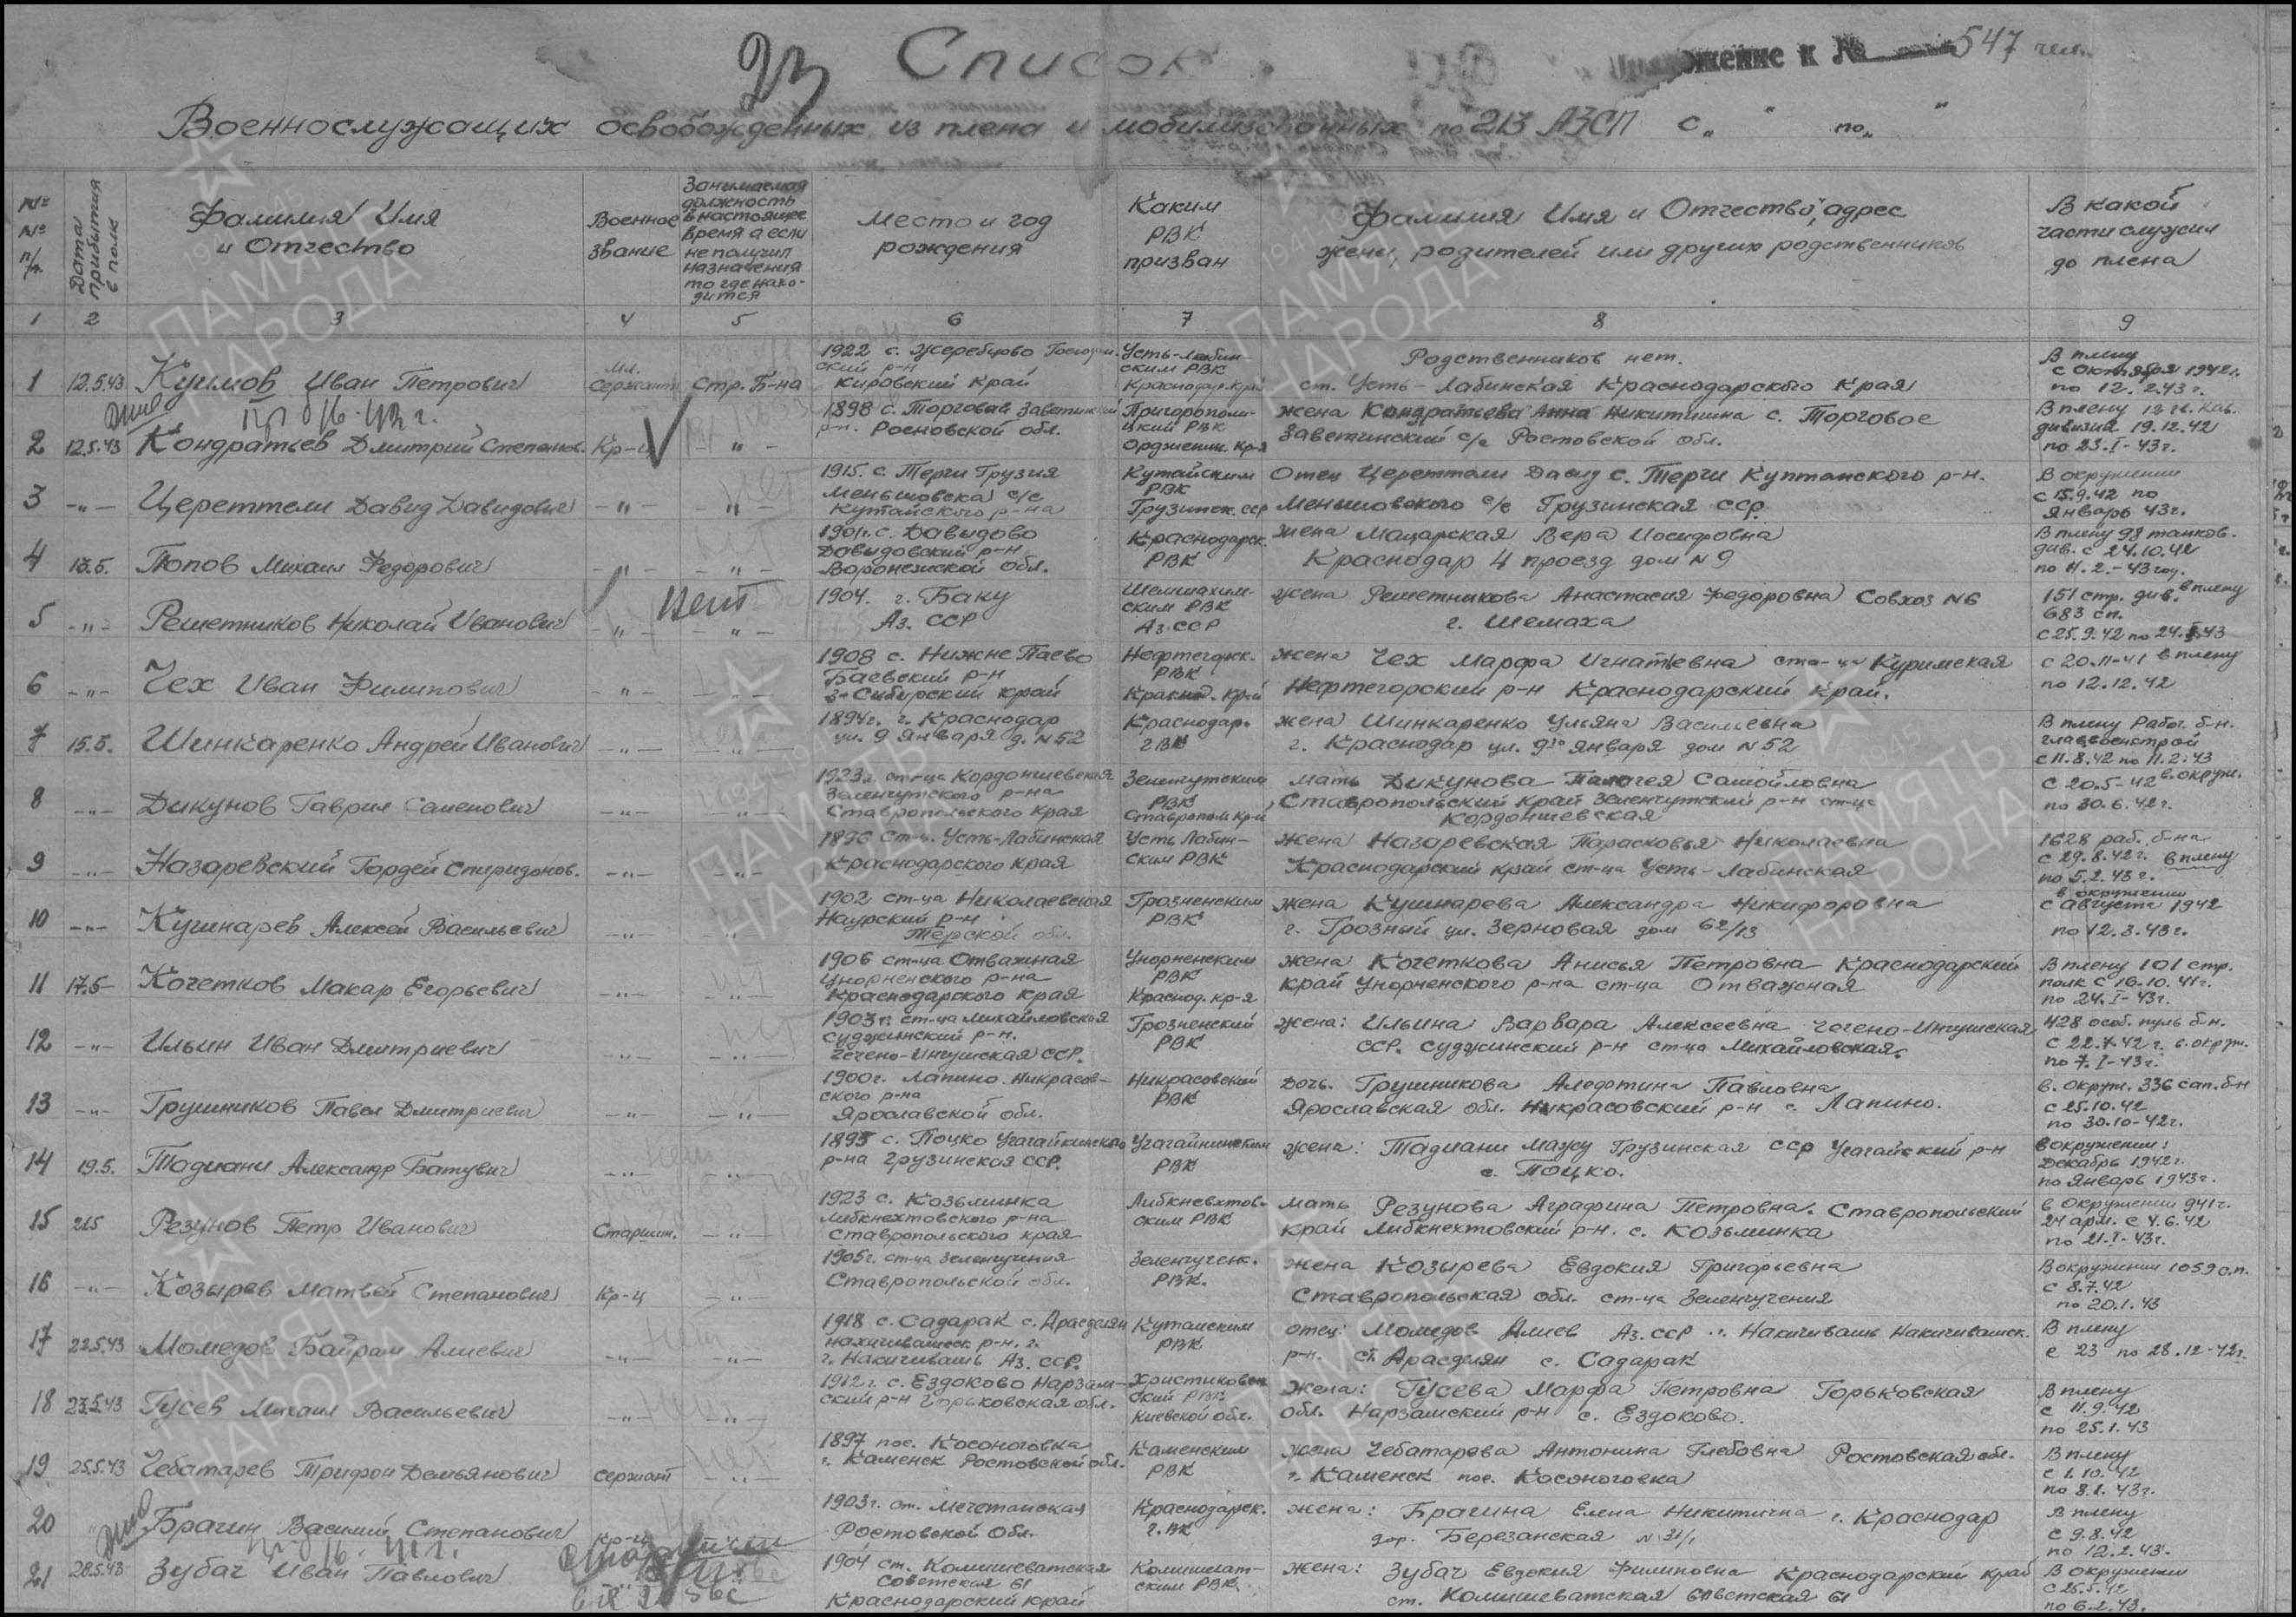 Список
Приложение к № 547 чел.
Военнослужащих освобожденных из плена и мобилизованных по 213 АЗСП с „ " по „ "
№№ п/п
Дата прибытия в полк
Фамилия Имя и Отчество
Военное звание
Занимаемая должность в настоящее время а если не получил назначения то где находится
Место и год рождения
Каким РВК призван
Фамилия Имя и Отчество, адрес жены, родителей или других родственников
В какой части служил до плена
1 2 3 4 5 6 7 8 9
1 12.5.43 Куимов Иван Петрович Мл. Сержант Стр. Б-на 1922 с. Жеребцово ский р-н Кировский Край Усть-Лабинским РВК Краснодар. край Родственников нет. ст. Усть-Лабинская Краснодарского Края В плену с Октября 1942 г. по 12.2.43 г.
2 12.5.43 Кондратьев Дмитрий Степанов. Кр-ц — „ — 1898 с. Торговая Заветинский р-н. Росновской обл. РВК Орджоник. Кр-я жена Кондратьева Анна Никитишна с. Торговое Заветинский с/с Ростовской обл. В плену 13 гв. Кав. дивизия 19.12.42 по 23.I-43 г.
3 — „ — Цереттели Давид Давидович — „ — — „ — 1915. с. Терчи Грузия Меньшовска с/с Кутайского р-на Кутайским РВК Грузинск. сср Отец Церетели Давид с. Терчи Куптанского р-н. Меншовского с/с Грузинская сср. В окружении с 15.9.42 по Январь 43 г.
4 13.5. Попов Михаил Федорович — „ — — „ — 1901 г. с. Давыдово Давыдовский р-н Воронежской обл. Краснодарск. РВК жена Мацарская Вера Иосифовна Краснодар 4 проезд дом N 9 В плену 98 танков. див. с 24.10.42 по 11.2.-43 год.
5 — „ — Решетников Николай Иванович — „ — — „ — 1904. г. Баку Аз. ССР Шемшахимским РВК Аз. ССР жена Решетникова Анастасия Федоровна Совхоз N6 г. Шемаха 151 стр. див. в плену 683 сп. с 25.9.42 по 24.I.43
6 — „ — Чех Иван Филипович — „ — — „ — 1908 с. Нижне Паево Баевский р-н З-Сибирский край Нефтегорск. РВК Краснод. кр-й жена Чех Марфа Игнатьевна ста-ца Куримская Нефтегорский р-н Краснодарский Край. с 20.11-41 в плену по 12.12.42
7 15.5. Шинкаренко Андрей Иванович — „ — — „ — 1894 г. г. Краснодар ул. 9 Января д. N 52 Краснодар. ГВК жена Шинкаренко Ульяна Васильевна г. Краснодар ул. 9го Января дом N 52 В плену Рабоч. б-н. главвоенстрой с 11.8.42 по 11.2.43
8 — „ — Дикунов Гаврил Семенович — „ — — „ — 1923 г. ст-ца Кордоншевская Зеленчутского р-на Ставропольского Края Зеленчутским РВК Ставропол. кр-й мать Дикунова Палогея Самойловна Ставропольский край Зеленчутский р-н ст-ца Кордоншевская С 20.5-42 в. окруж. по 30.6.42 г.
9 — „ — Назаревский Гордей Спиридонов. — „ — — „ — 1896 ст-ц. Усть-Лабинская Краснодарского Края Усть Лабинским РВК жена Назаревская Парасковья Николаевна Краснодарский край ст-ца Усть-Лабинская 1628 раб. б-на с 29.8.42 г. в плену по 5.2.43 г.
10 — „ — Кушнарев Алексей Васильевич — „ — — „ — 1902 ст-ца Николаевская Наурский р-н Терской обл. Грозненским РВК жена Кушнарева Александра Никифоровна г. Грозный ул. Зерновая дом 62/13 в окружении с Августа 1942 по 12.3.43 г.
11 17.5 Кочетков Макар Егорьевич — „ — — „ — 1906 ст-ца Отважная Упорненского р-на Краснодарского края Упорненским РВК Краснод. кр-я жена Кочеткова Анисья Петровна Краснодарский край Упорненского р-на ст-ца Отважная В плену 101 стр. полк с 16.10.41 г. по 24.I-43 г.
12 — „ — Ильин Иван Дмитриевич — „ — — „ — 1903 г. ст-ца Михайловская Суджинский р-н. Чечено-Ингушская ССР. Грозненский РВК жена: Ильина Варвара Алексеевна Чечено-Ингушская ССР. Суджинский р-н ст-ца Михайловская. 428 особ. пуль б-н. с 22.7.42 г. в. окруж. по 7.I-43 г.
13 — „ — Грушников Павел Дмитриевич — „ — — „ — 1900 г. Лапино. Никрасовского р-на Ярославской обл. Никрасовский РВК дочь. Грушникова Аледотина Павловна Ярославская обл. Никрасовский р-н с. Лапино. в. окруж. 336 сап. б-н с 25.10.42 по 30.10-42 г.
14 19.5. Тадиани Александр Батувич — „ — — „ — 1895 с. Поцко р-на Грузинская ССР. РВК жена: Тадиани Мазу Грузинская сср р-н с. Поцко. В окружении: Декабрь 1942 г. по Январь 1943 г.
15 21.5 Резунов Петр Иванович Старшин. — „ — 1923 с. Козьминка Либкнехтовского р-на Ставропольского края Либкнехтовским РВК мать Резунова Аграфина Петровна. Ставропольский край Либкнехтовский р-н. с. Козьминка в окружении 941 г. 24 арм. с 4.6.42 по 21.I-43 г.
16 — „ — Козырев Матвей Степанович Кр-ц — „ — 1905 г. ст-ца Зеленчучения Ставропольской обл. Зеленчученк. РВК. жена Козырева Евдокия Григорьевна Ставропольская обл. ст-ца Зеленчучения В окружении 1059 с.п. с 8.7.42 по 20.1.43
17 22.5.43 Момедов Байрам Алиевич — „ — — „ — 1918 с. Садарак с. Арасделян р-н. г. г. Накичивашь Аз. ССР. Кутаиским РВК отец: Момедов Алиев Аз. ССР г. Накичивашь Накичивашск. р-н. ст. Арасделян с. Садарак В плену с 23 по 28.12-42 г.
18 23.5.43 Гусев Михаил Васильевич — „ — — „ — 1912 г. с. Ездоково Нарзамский р-н Горьковская обл. Христиковск ский РВК Киевской обл. Жена: Гусева Марфа Петровна Горьковская обл. Нарзамский р-н с. Ездоково. В плену с 11.9.42 по 25.1.43
19 25.5.43 Чебатарев Трифон Демьянович сержант — „ — 1897 пос. Косоноговка г. Каменск Ростовской обл. Каменским РВК жена Чебатарева Антонина Глебовна Ростовская обл. г. Каменск пос. Косоноговка В плену с 1.10.42 по 8.1.43 г.
20 Брагин Василий Степанович Кр-ц 1903 г. ст. Мечетинская Ростовской Обл. Краснодарск. г. ВК жена: Брагина Елена Никитична г. Краснодар дор. Березанская N 21/1 В плену с 9.8.42 по 12.2.43.
21 28.5.43 Зубач Иван Павлович 1904 ст. Комишеватская Советская 61 Краснодарский край Комишеватским РВК. жена: Зубач Евдокия Филиповна Краснодарский край ст. Комишеватская Советская 61 В окружении с 25.5.42 по 6.2.43.
ПАМЯТЬ НАРОДА
1941-1945